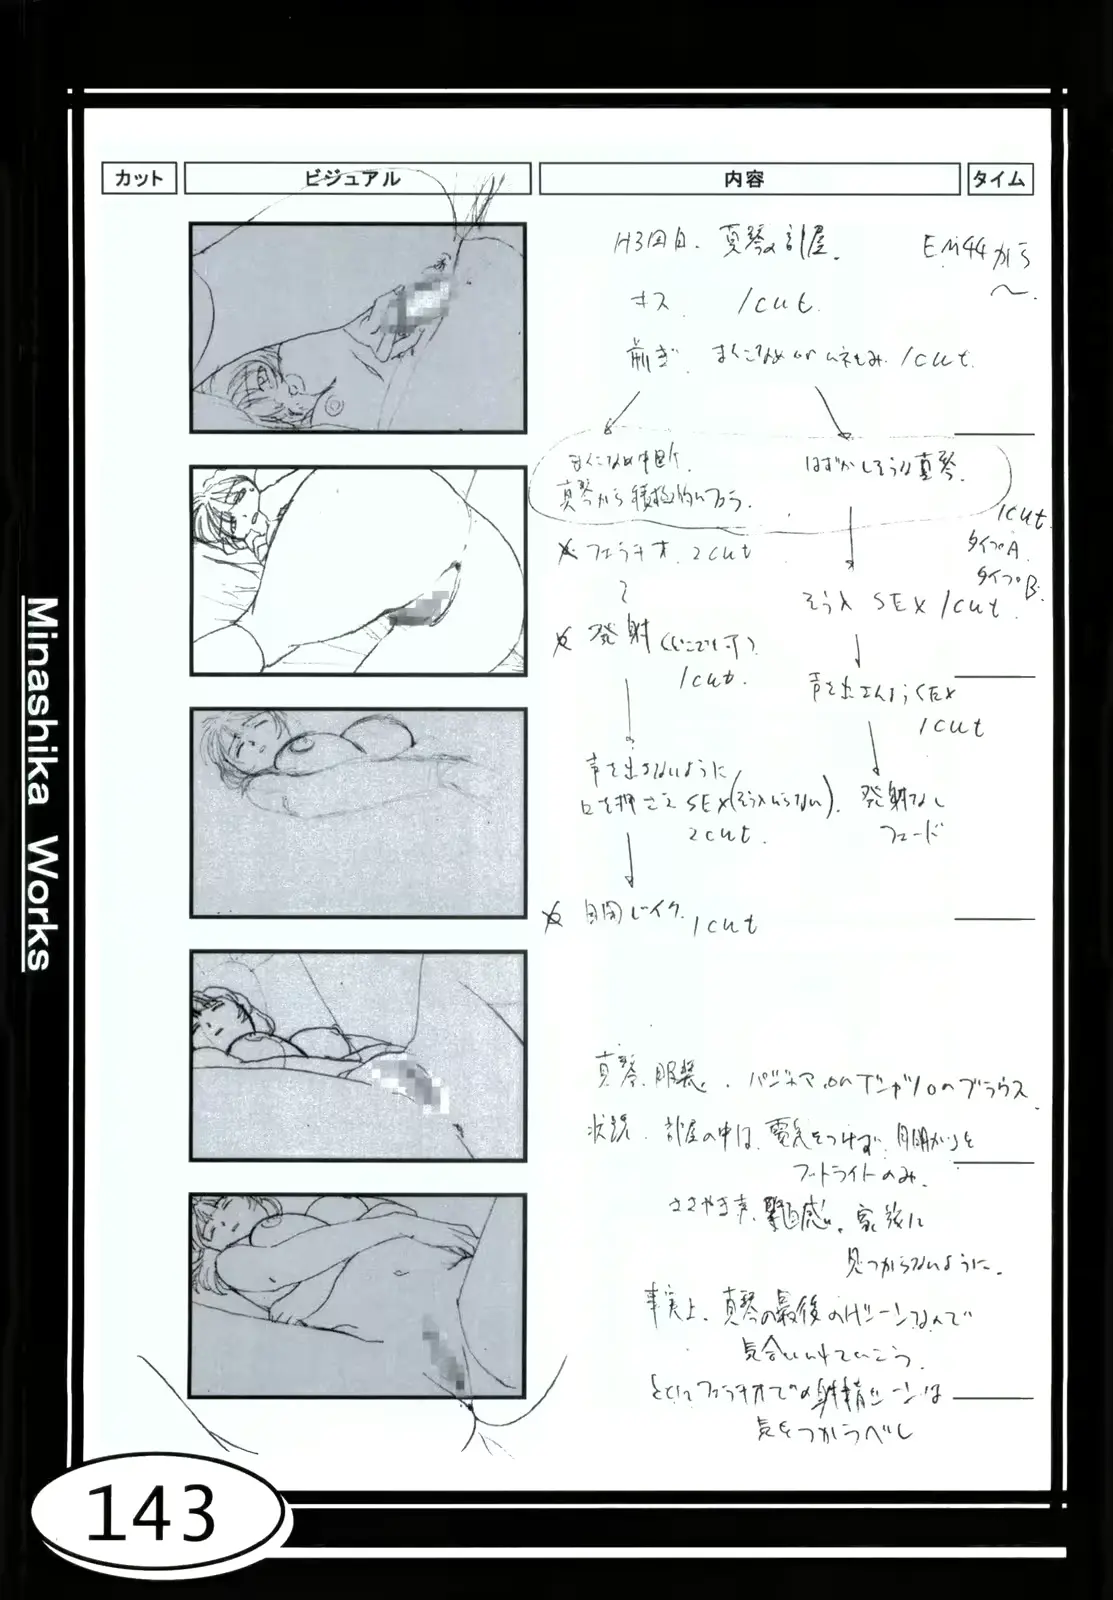 カット
ビジュアル
内容
タイム
H3回目、真琴の部屋。
EM44から
〜
キス 1cut.
1cut.
はずかしそうな真琴。
真琴から積極的にフェラ。
1cut.
タイプA.
タイプB.
フェラチオ 2cut
そう入 SEX 1cut.
発射(どこでも可)
1cut.
声を出さんようSEX
1cut
声を出さないように
口を押さえ SEX(そう入いらない).
2cut.
発射なし
フェード
1cut
真琴、服装、パジャマ
状況、部屋の中は、電気をつけず、月明かりと
フットライトのみ。
ささやき声、緊迫感。家族に
見つからないように。
事実上、真琴の最後のHシーンなんで
気合いいれていこう。
とくにフェラチオでの射精シーンは
気をつかうべし
Minashika Works
143